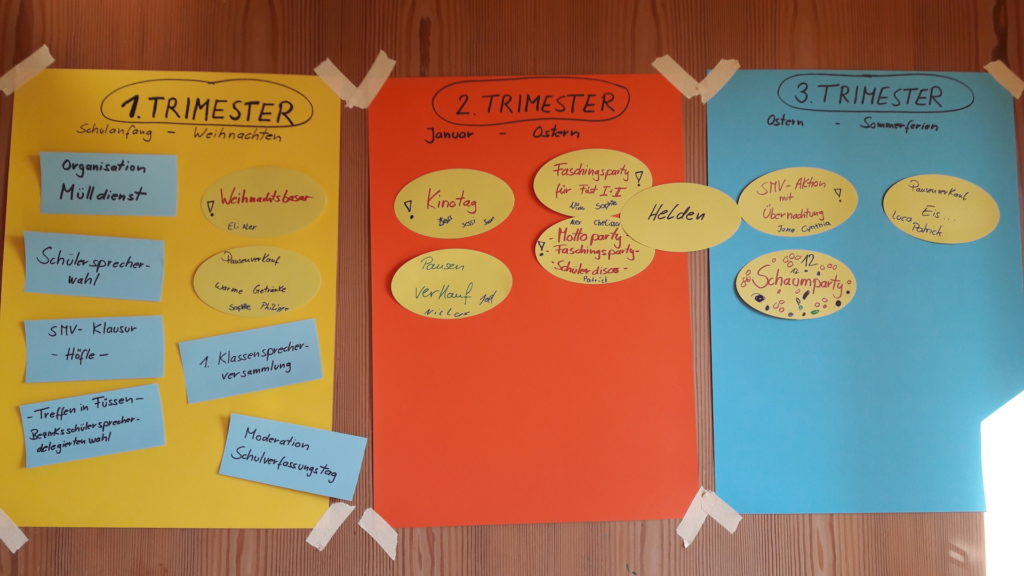 1. TRIMESTER
Schulanfang - Weihnachten
Organisation
Mülldienst
Weihnachtsbasar
Schülersprecher-
wahl
Pausenverkauf
Warme Getränke
Sophie
SMV- Klausur
- Höfle -
1. Klassensprecher-
versammlung
- Treffen in Füssen -
Bezirksschülersprecher-
delegierten wahl
Moderation
Schulverfassungstag
2. TRIMESTER
Januar - Ostern
Kinotag
Faschingsparty
für Füst I+II
Sophie
Helden
Pausen
verkauf
- Motto party -
- Faschingsparty-
- Schülerdisco -
Patrick
3. TRIMESTER
Ostern - Sommerferien
SMV- Aktion
mit
Übernachtung
Jana Cynthia
Pausenverkauf
Eis...
Luca
Patrick
12
Schaumparty